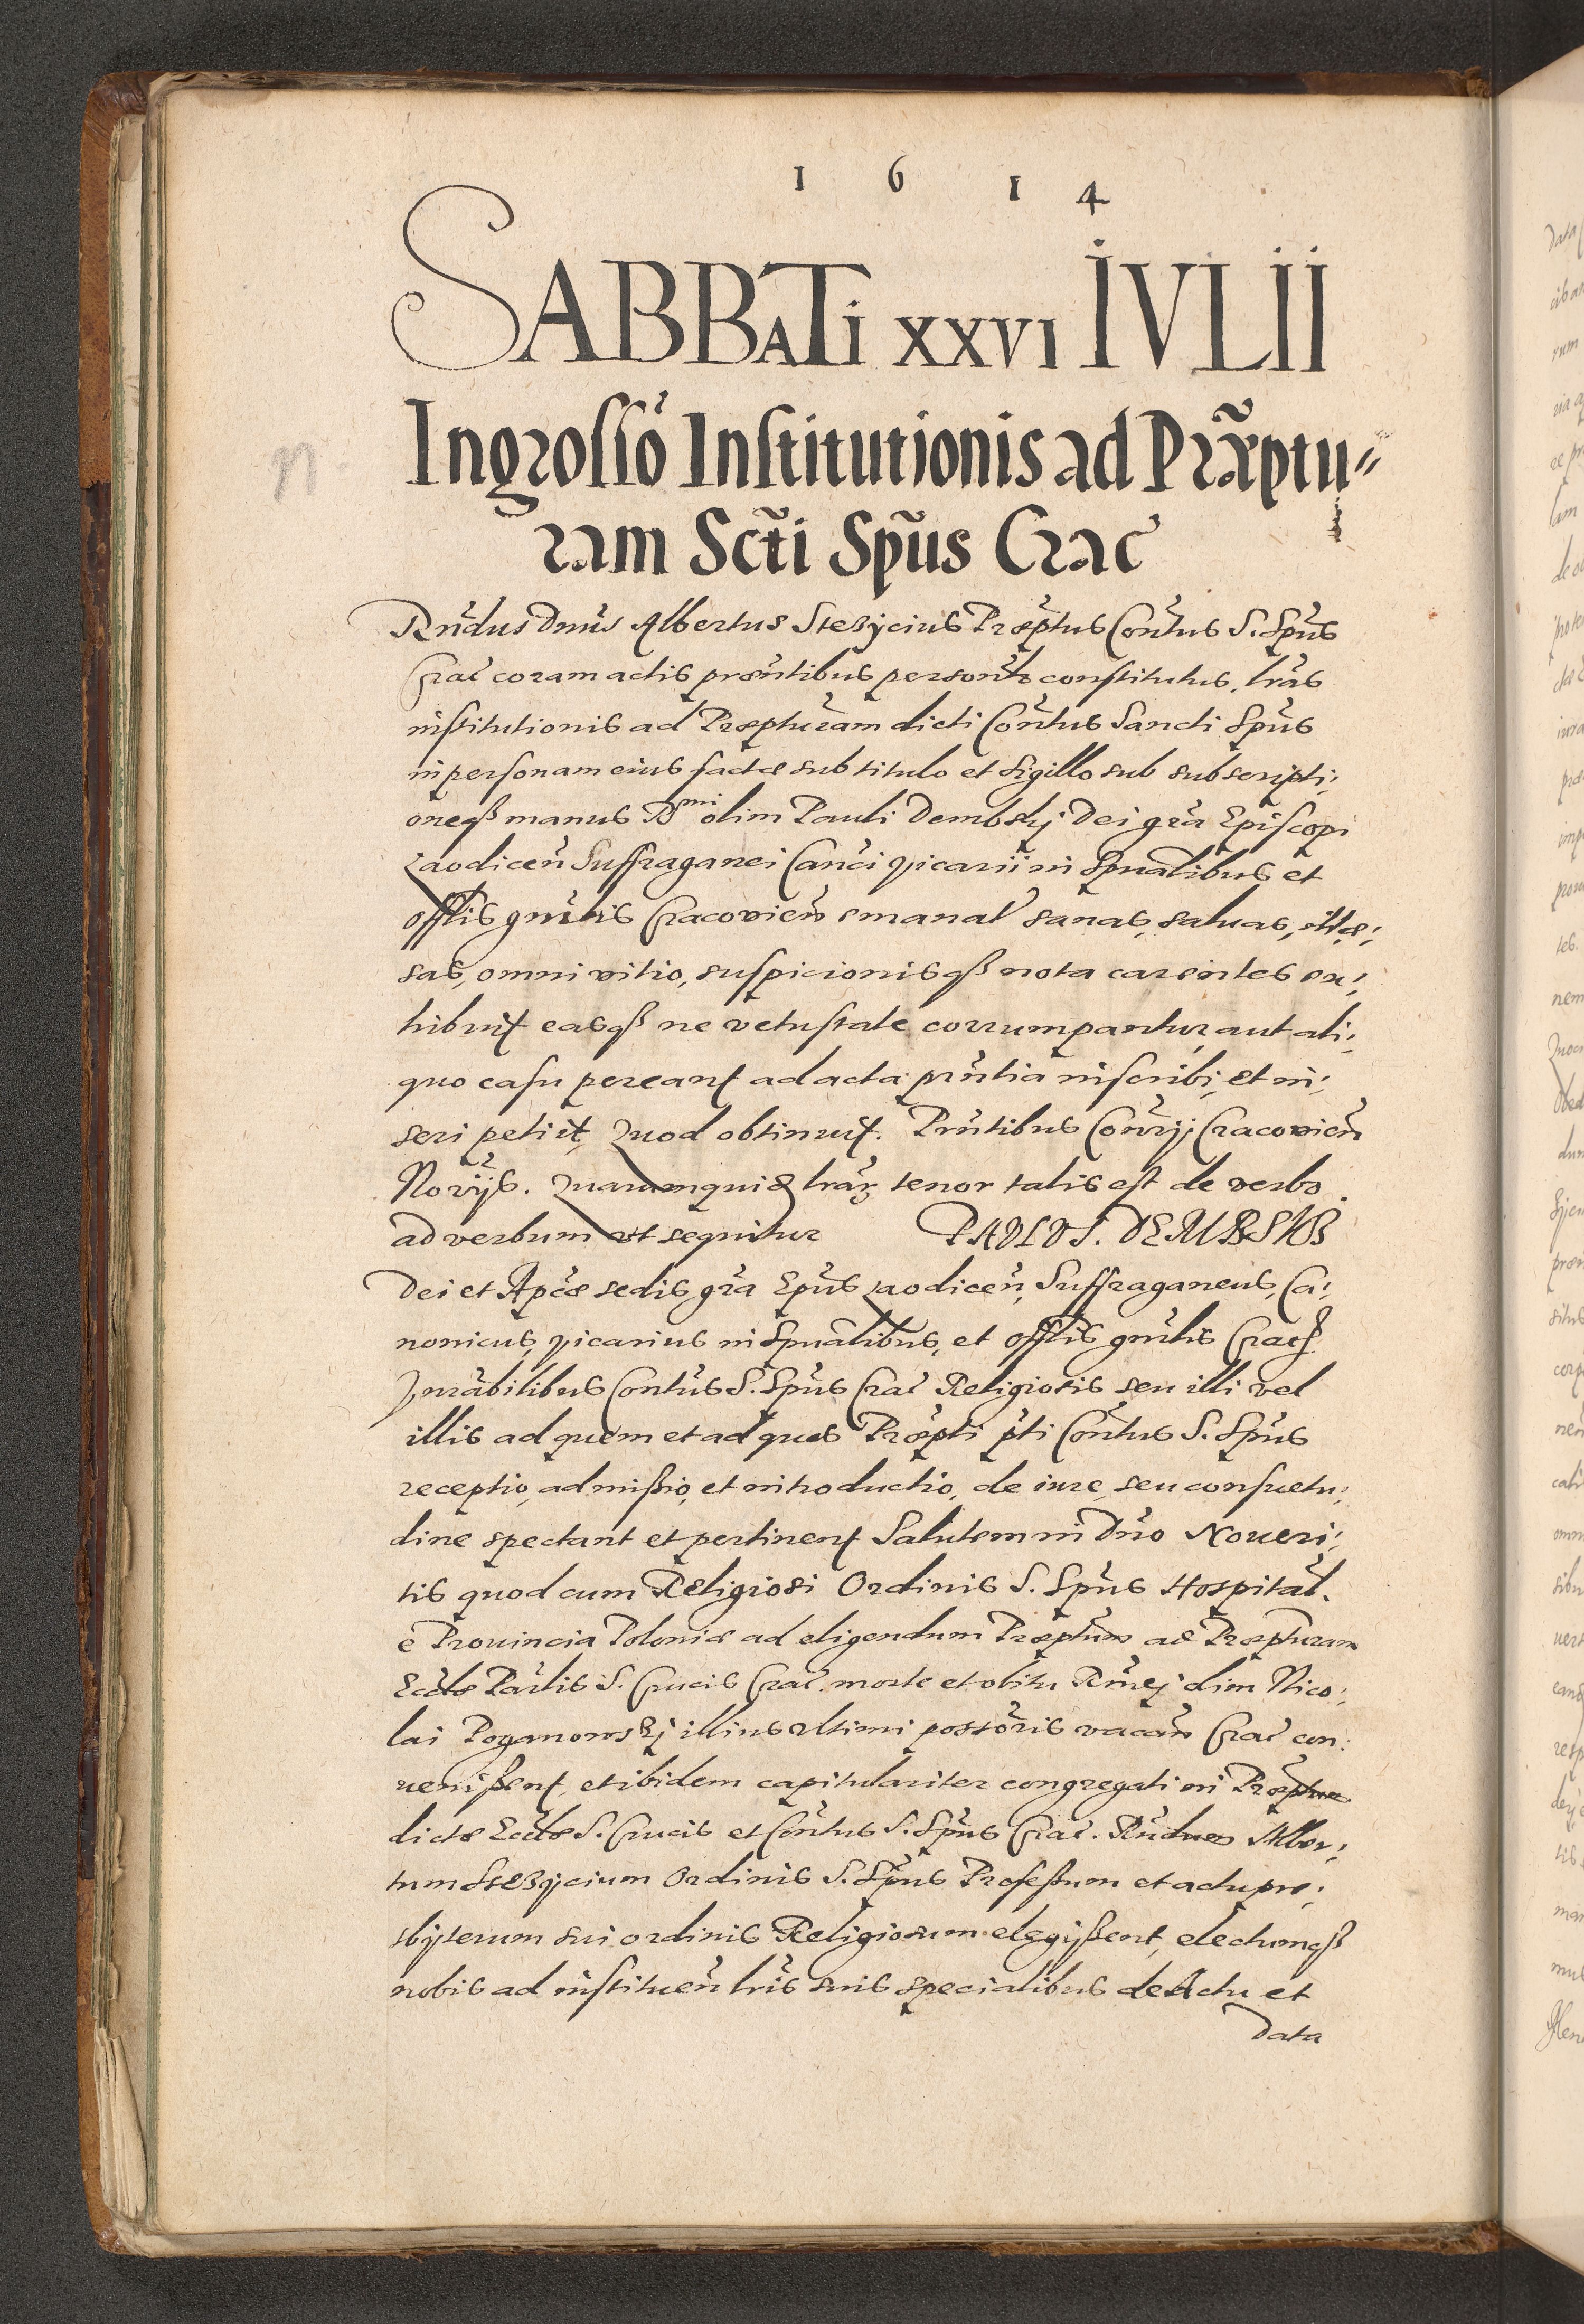 1 6 1 4
SABBATi XXVI IVLII
Ingrossõ Institutionis ad Præptu„
ram Scti Spũs Crac
Rndus Dnus Albertus Stezycius Præptus Conũtus S. Spũs
Crac coram actis præntibus personlr constitutus, lras
institutionis ad Præpturam dicti Conũtus Sancti Spũs
in personam eius factæ sub titulo et sigillo sub subscripti;
oneqȝ manus Rmi olim Pauli Dembskj Dei grã Episcopi
Laodiceñ Suffraganei Canci Vicarii in Spũalibus et
Offlis gnrlis Cracovieñ emanat sanas, saluas, illæ;
sas, omni vitio, suspicionisqȝ nota carentes ex;
hibuit easqȝ ne vetustate corrumpantur, aut ali;
quo casu pereant ad acta prñtia inscribi, et in;
seri petiit, Quod obtinuit. Prñtibus Conrÿ Cracovieñ
Norÿs. Quarumquid lrar tenor talis est de verbo
ad verbum ut sequitur PAVLVS. DEMBSKI
Dei et Apcæ sedis grã Epũs Laodiceñ, Suffraganeus, Ca;
nonicus, Vicarius in Spũalibus, et Offlis gnrlis Crac
Vnrabilibus Conũtus S. Spũs Crac Religiosis, seu illi vel
illis ad quem et ad quos Præpti pti Conũtus S. Spũs
receptio, admissio, et introductio, de iure, seu consuetu;
dine spectant et pertinent Salutem in Dño Noueri;
tis quod cum Religiosi Ordinis S. Spũs Hospital.
e Prouincia Poloniæ ad eligendum Præptum ad Præpturam
Ecclæ Parlis S. Crucis Crac. morte et obitu olim Nico;
lai illius ultimi possoris vacañ Crac con;
uenissent, et ibidem capitulariter congregati in
dictæ Ecclæ S. Crucis et Conũtus S. Spũs Crac. Rndum Alber;
tum Stezycium Ordinis S. Spũs Professum et actu præ;
sbÿterum sui ordinis Religiosum elegissent, electumqȝ
nobis ad instituen lris suis specialibus de Actu et
Data